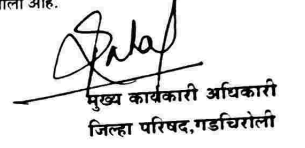 आहे.
मुख्य कार्यकारी अधिकारी
जिल्हा परिषद,गडचिरोली